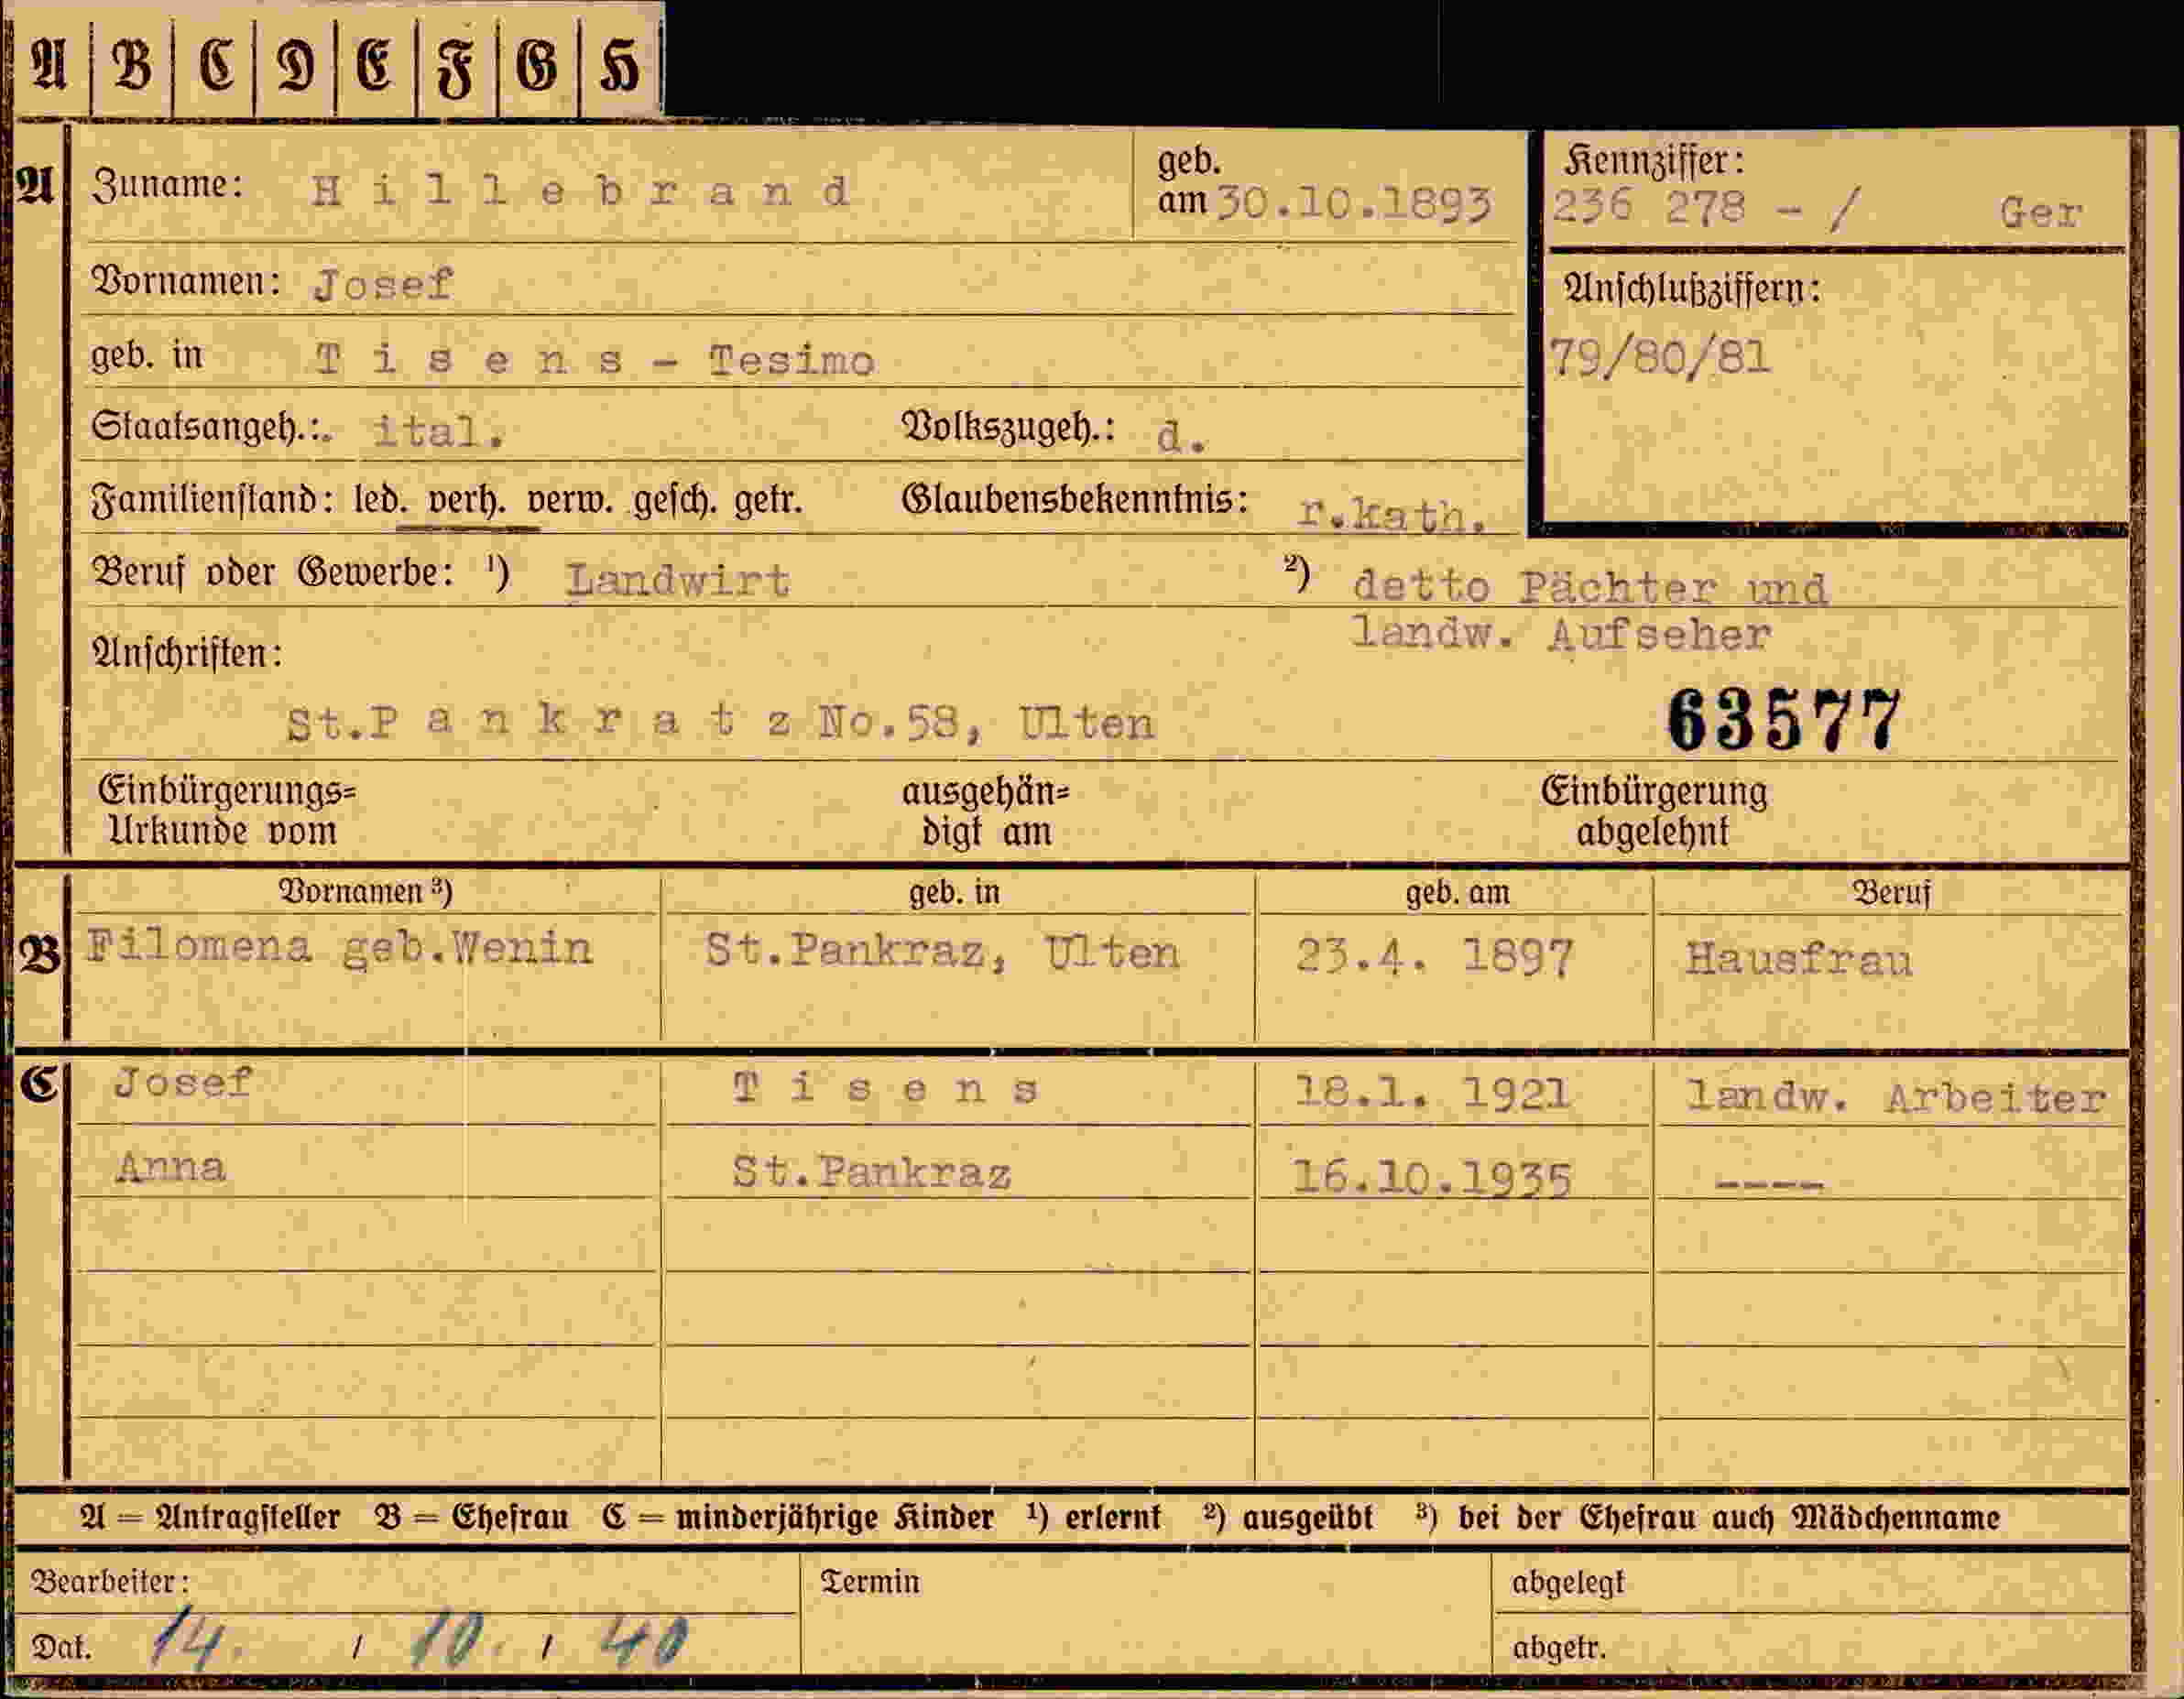 A B C D E F G H
A Zuname: Hillebrand geb. am 30.10.1893
Kennziffer: 236 278 - / Ger
Vornamen: Josef
Anschlußziffern:
geb. in Tisens - Tesimo 79/80/81
Staatsangeh.: ital. Volkszugeh.: d.
Familienstand: led. verh. verw. gesch. getr. Glaubensbekenntnis: r.kath.
Beruf oder Gewerbe: ¹) Landwirt ²) detto Pächter und
landw. Aufseher
Anschriften:
St.Pankratz No.58, Ulten 63577
Einbürgerungs= ausgehän= Einbürgerung
Urkunde vom digt am abgelehnt
Vornamen ³) geb. in geb. am Beruf
B Filomena geb.Wenin St.Pankraz, Ulten 23.4. 1897 Hausfrau
C Josef Tisens 18.1. 1921 landw. Arbeiter
Anna St.Pankraz 16.10.1935 ----
A = Antragsteller B = Ehefrau C = minderjährige Kinder ¹) erlernt ²) ausgeübt ³) bei der Ehefrau auch Mädchenname
Bearbeiter: Termin abgelegt
Dat. 14. / 10. / 40 abgetr.